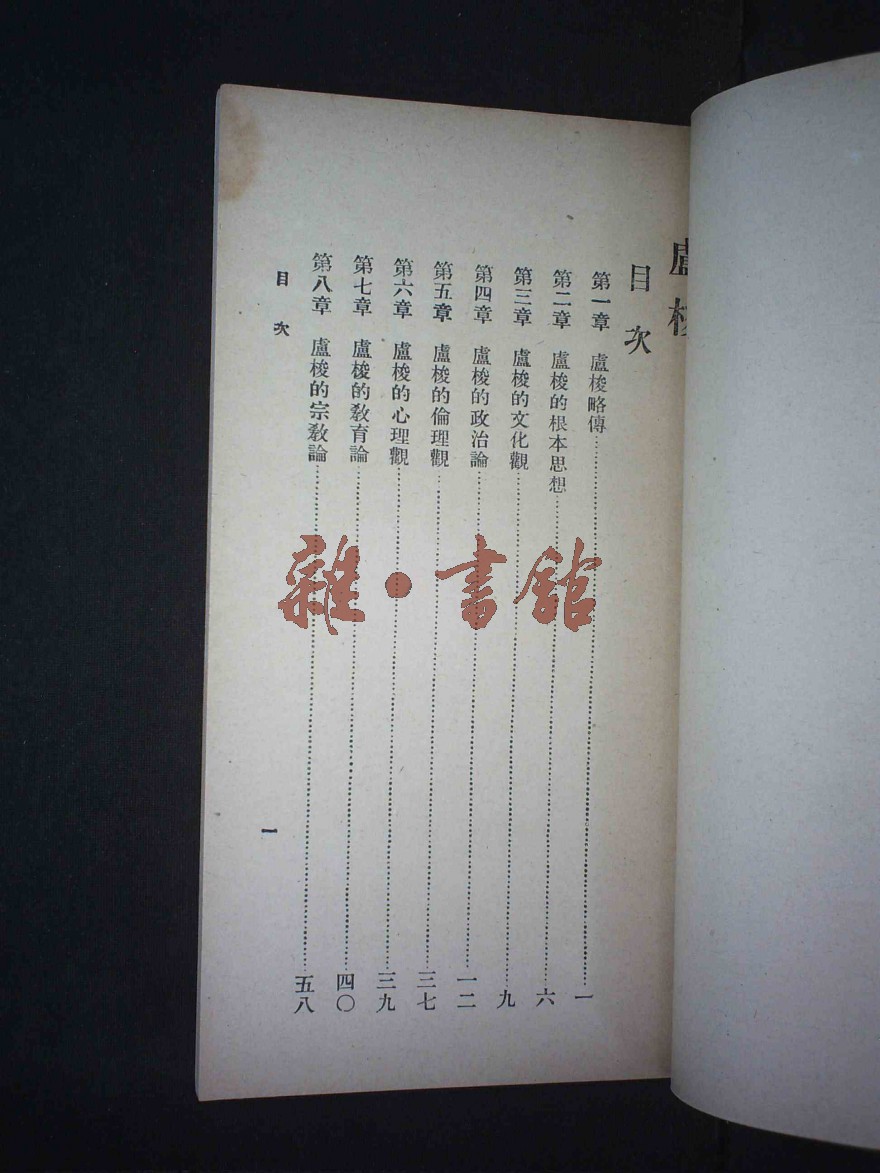 盧梭
目次
第一章 盧梭略傳……一
第二章 盧梭的根本思想……六
第三章 盧梭的文化觀……九
第四章 盧梭的政治論……一二
第五章 盧梭的倫理觀……三七
第六章 盧梭的心理觀……三九
第七章 盧梭的教育論……四〇
第八章 盧梭的宗教論……五八
目次
一
雜·書館